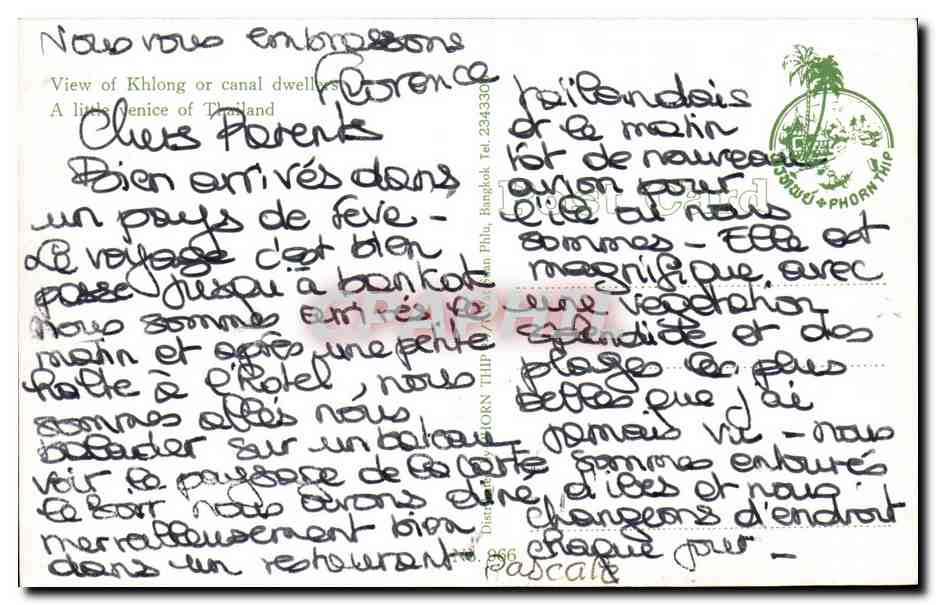 Nous vous embrassons
Florence
View of Khlong or canal dwellers
A little venice of Thailand
Chers Parents
Bien arrivés dans
un pays de reve -
Le voyage c'est bien
passé jusqu'à bankok
nous sommes arrivés le
matin et après une petite
halte à l'hotel, nous
sommes allés nous
balader sur un bateau
voir le paysage de la carte
le soir nous avons diné
merveilleusement bien
dans un restaurant
thaïlandais
et le matin
tot de nouveau
avion pour
l'ile où nous
sommes - Elle est
magnifique avec
une vegetation
splendide et des
plages les plus
belles que j'ai
jamais vu - nous
sommes entourés
d'iles et nous
changeons d'endroit
chaque jour -
Pascale
Post Card
PHORN THIP
NO. 966
Bangkok Tel. 2343309
CPAPHIL